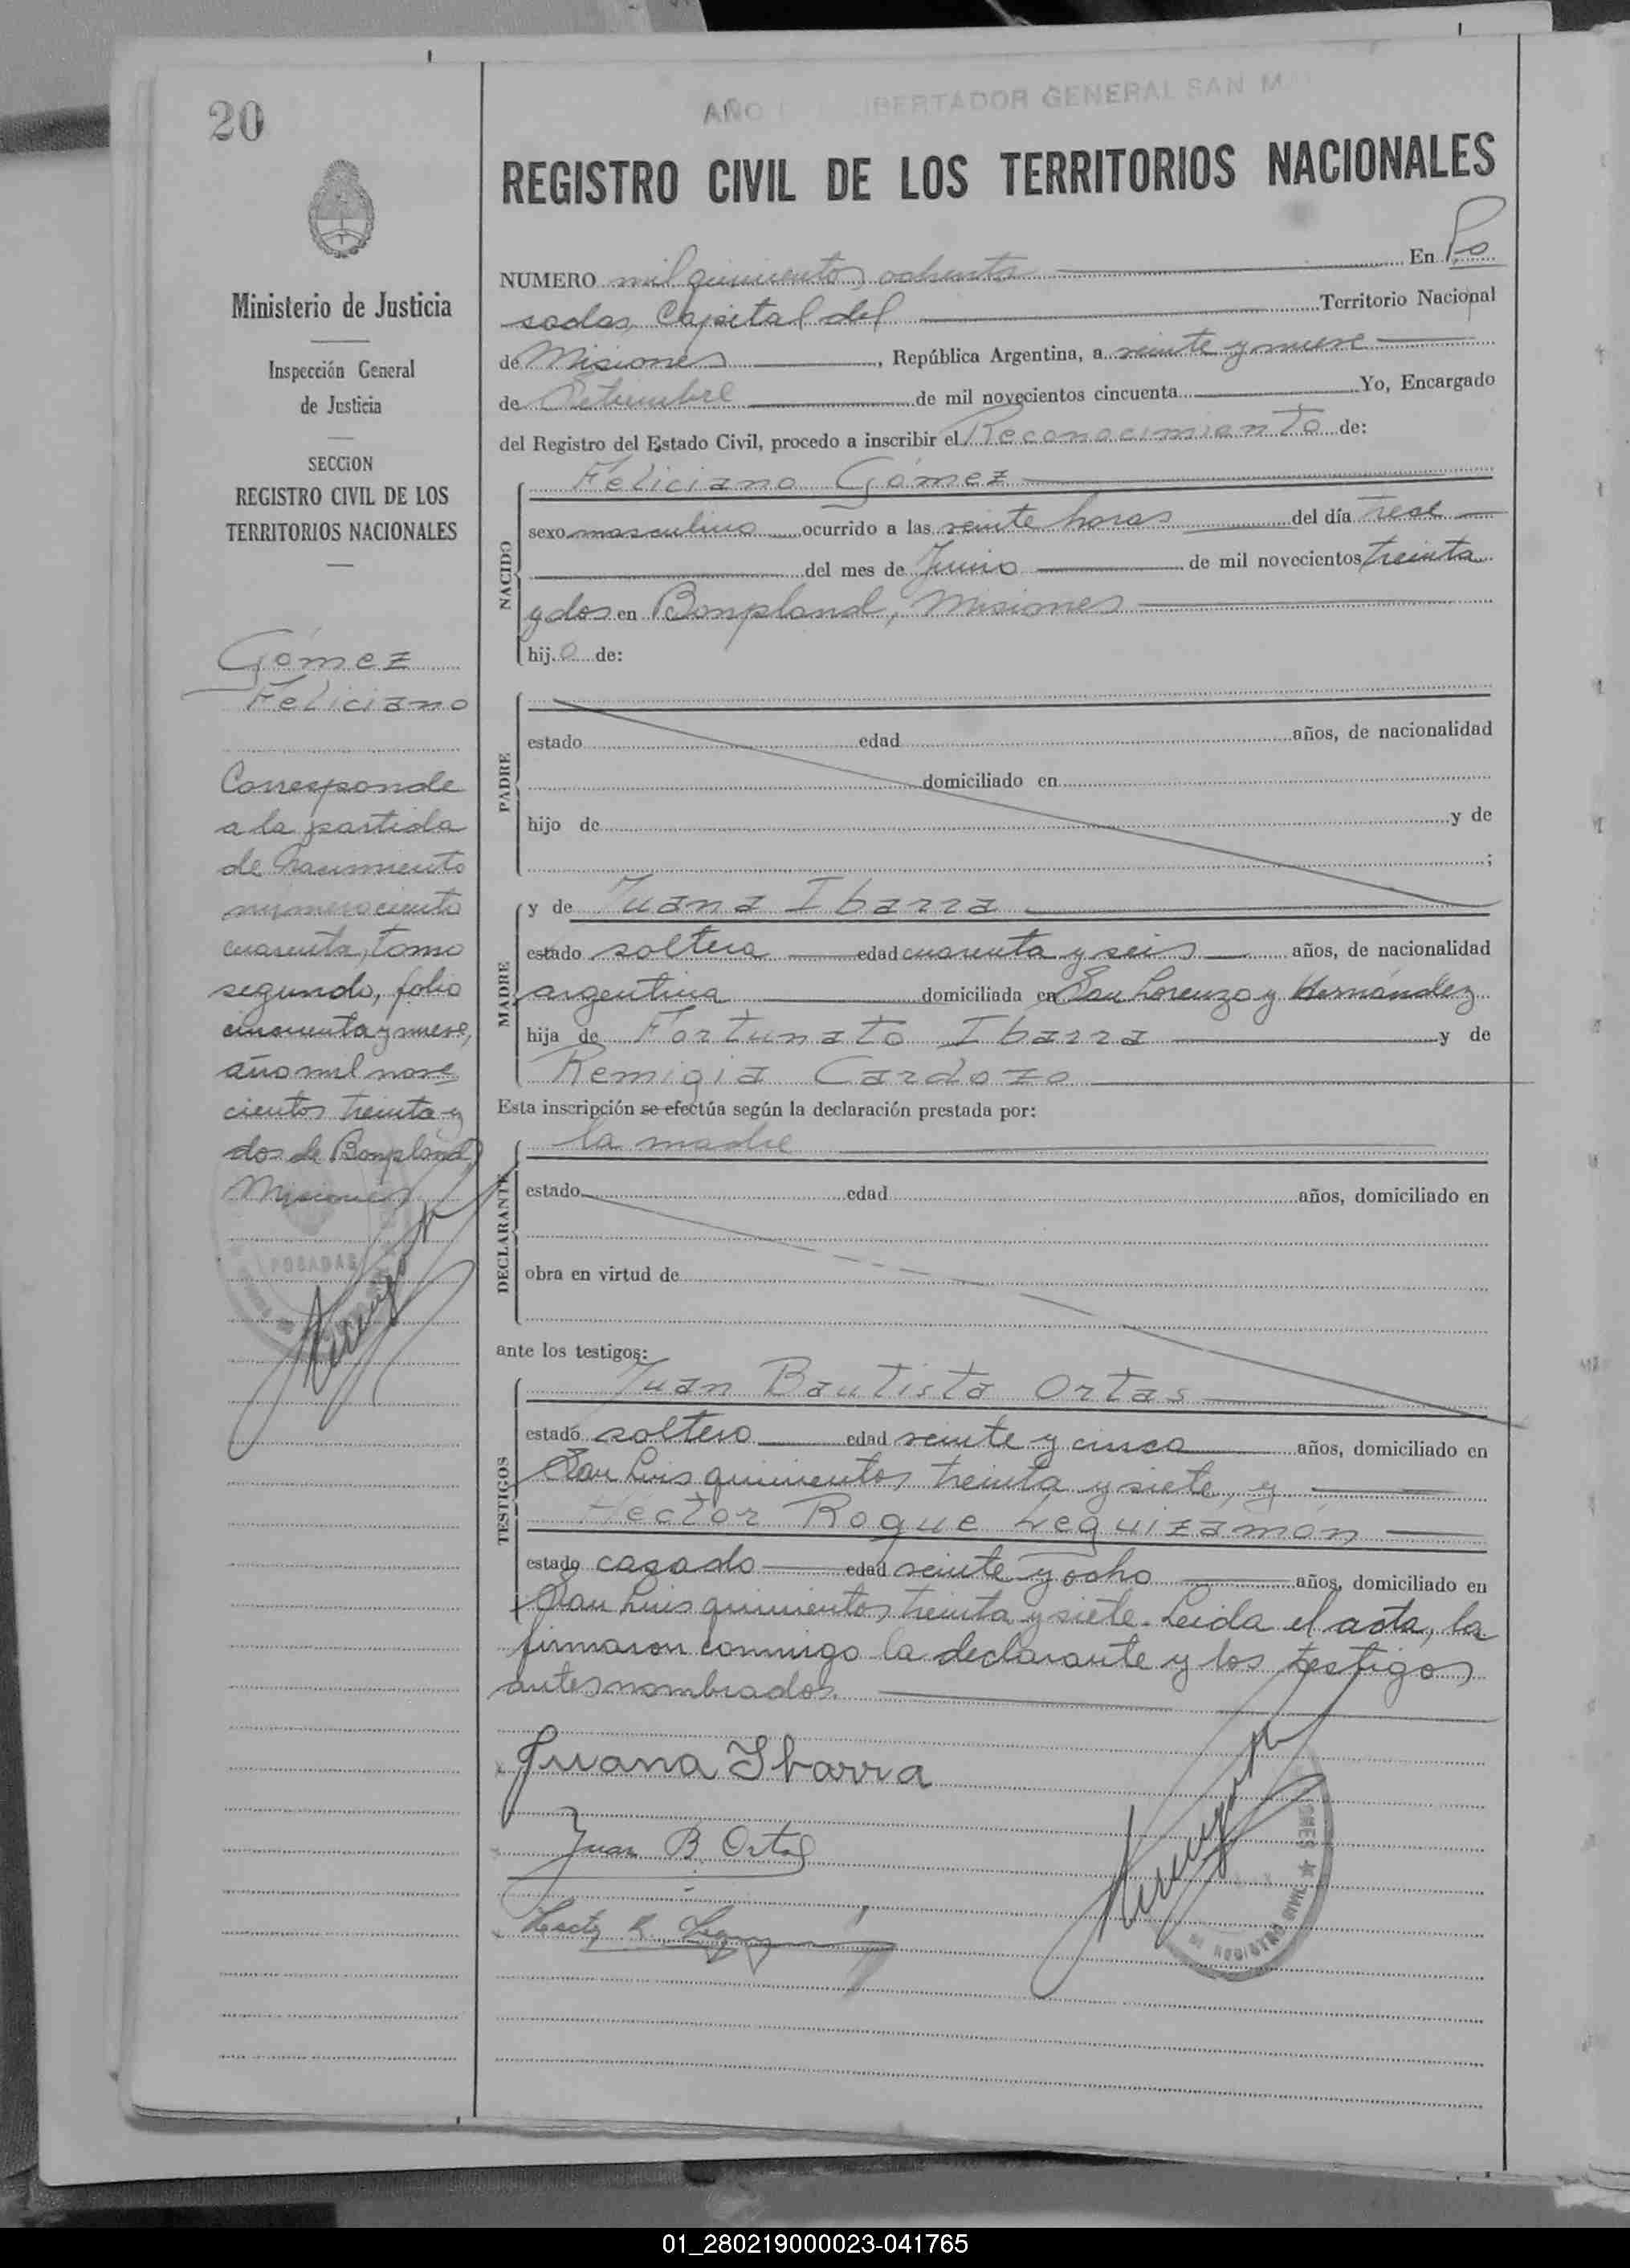 20
AÑO LIBERTADOR GENERAL SAN MA
REGISTRO CIVIL DE LOS TERRITORIOS NACIONALES
Ministerio de Justicia
Inspección General
de Justicia
SECCION
REGISTRO CIVIL DE LOS
TERRITORIOS NACIONALES
Gómez
Feliciano
Corresponde
a la partida
de Nacimiento
numero ciento
cuarenta, tomo
segundo, folio
cincuenta y nueve,
año mil nove
cientos treinta y
dos de Bonpland,
Misiones
POSADAS
NUMERO mil quinientos ochenta En Po
sadas, Capital del Territorio Nacional
de Misiones, República Argentina, a veinte y nueve
de Setiembre de mil novecientos cincuenta Yo, Encargado
del Registro del Estado Civil, procedo a inscribir el Reconocimiento de:
NACIDO
Feliciano Gómez
sexo masculino ocurrido a las veinte horas del día trece
del mes de Junio de mil novecientos treinta
y dos en Bonpland, Misiones
hijo de:
PADRE
estado edad años, de nacionalidad
domiciliado en
hijo de y de
;
MADRE
y de Juana Ibarra
estado soltera edad cuarenta y seis años, de nacionalidad
argentina domiciliada en San Lorenzo y Hernández
hija de Fortunato Ibarra y de
Remigia Cardozo
Esta inscripción se efectúa según la declaración prestada por:
DECLARANTE
la madre
estado edad años, domiciliado en
obra en virtud de
ante los testigos:
TESTIGOS
Juan Bautista Ortas
estado soltero edad veinte y cinco años, domiciliado en
San Luis quinientos treinta y siete, y
Hector Roque Leguizamón
estado casado edad veinte y ocho años, domiciliado en
San Luis quinientos treinta y siete. Leida el acta, la
firmaron conmigo la declarante y los testigos
antes nombrados.
Juana Ibarra
Juan B. Ortas
Hector R. Leguizamón
01_280219000023-041765